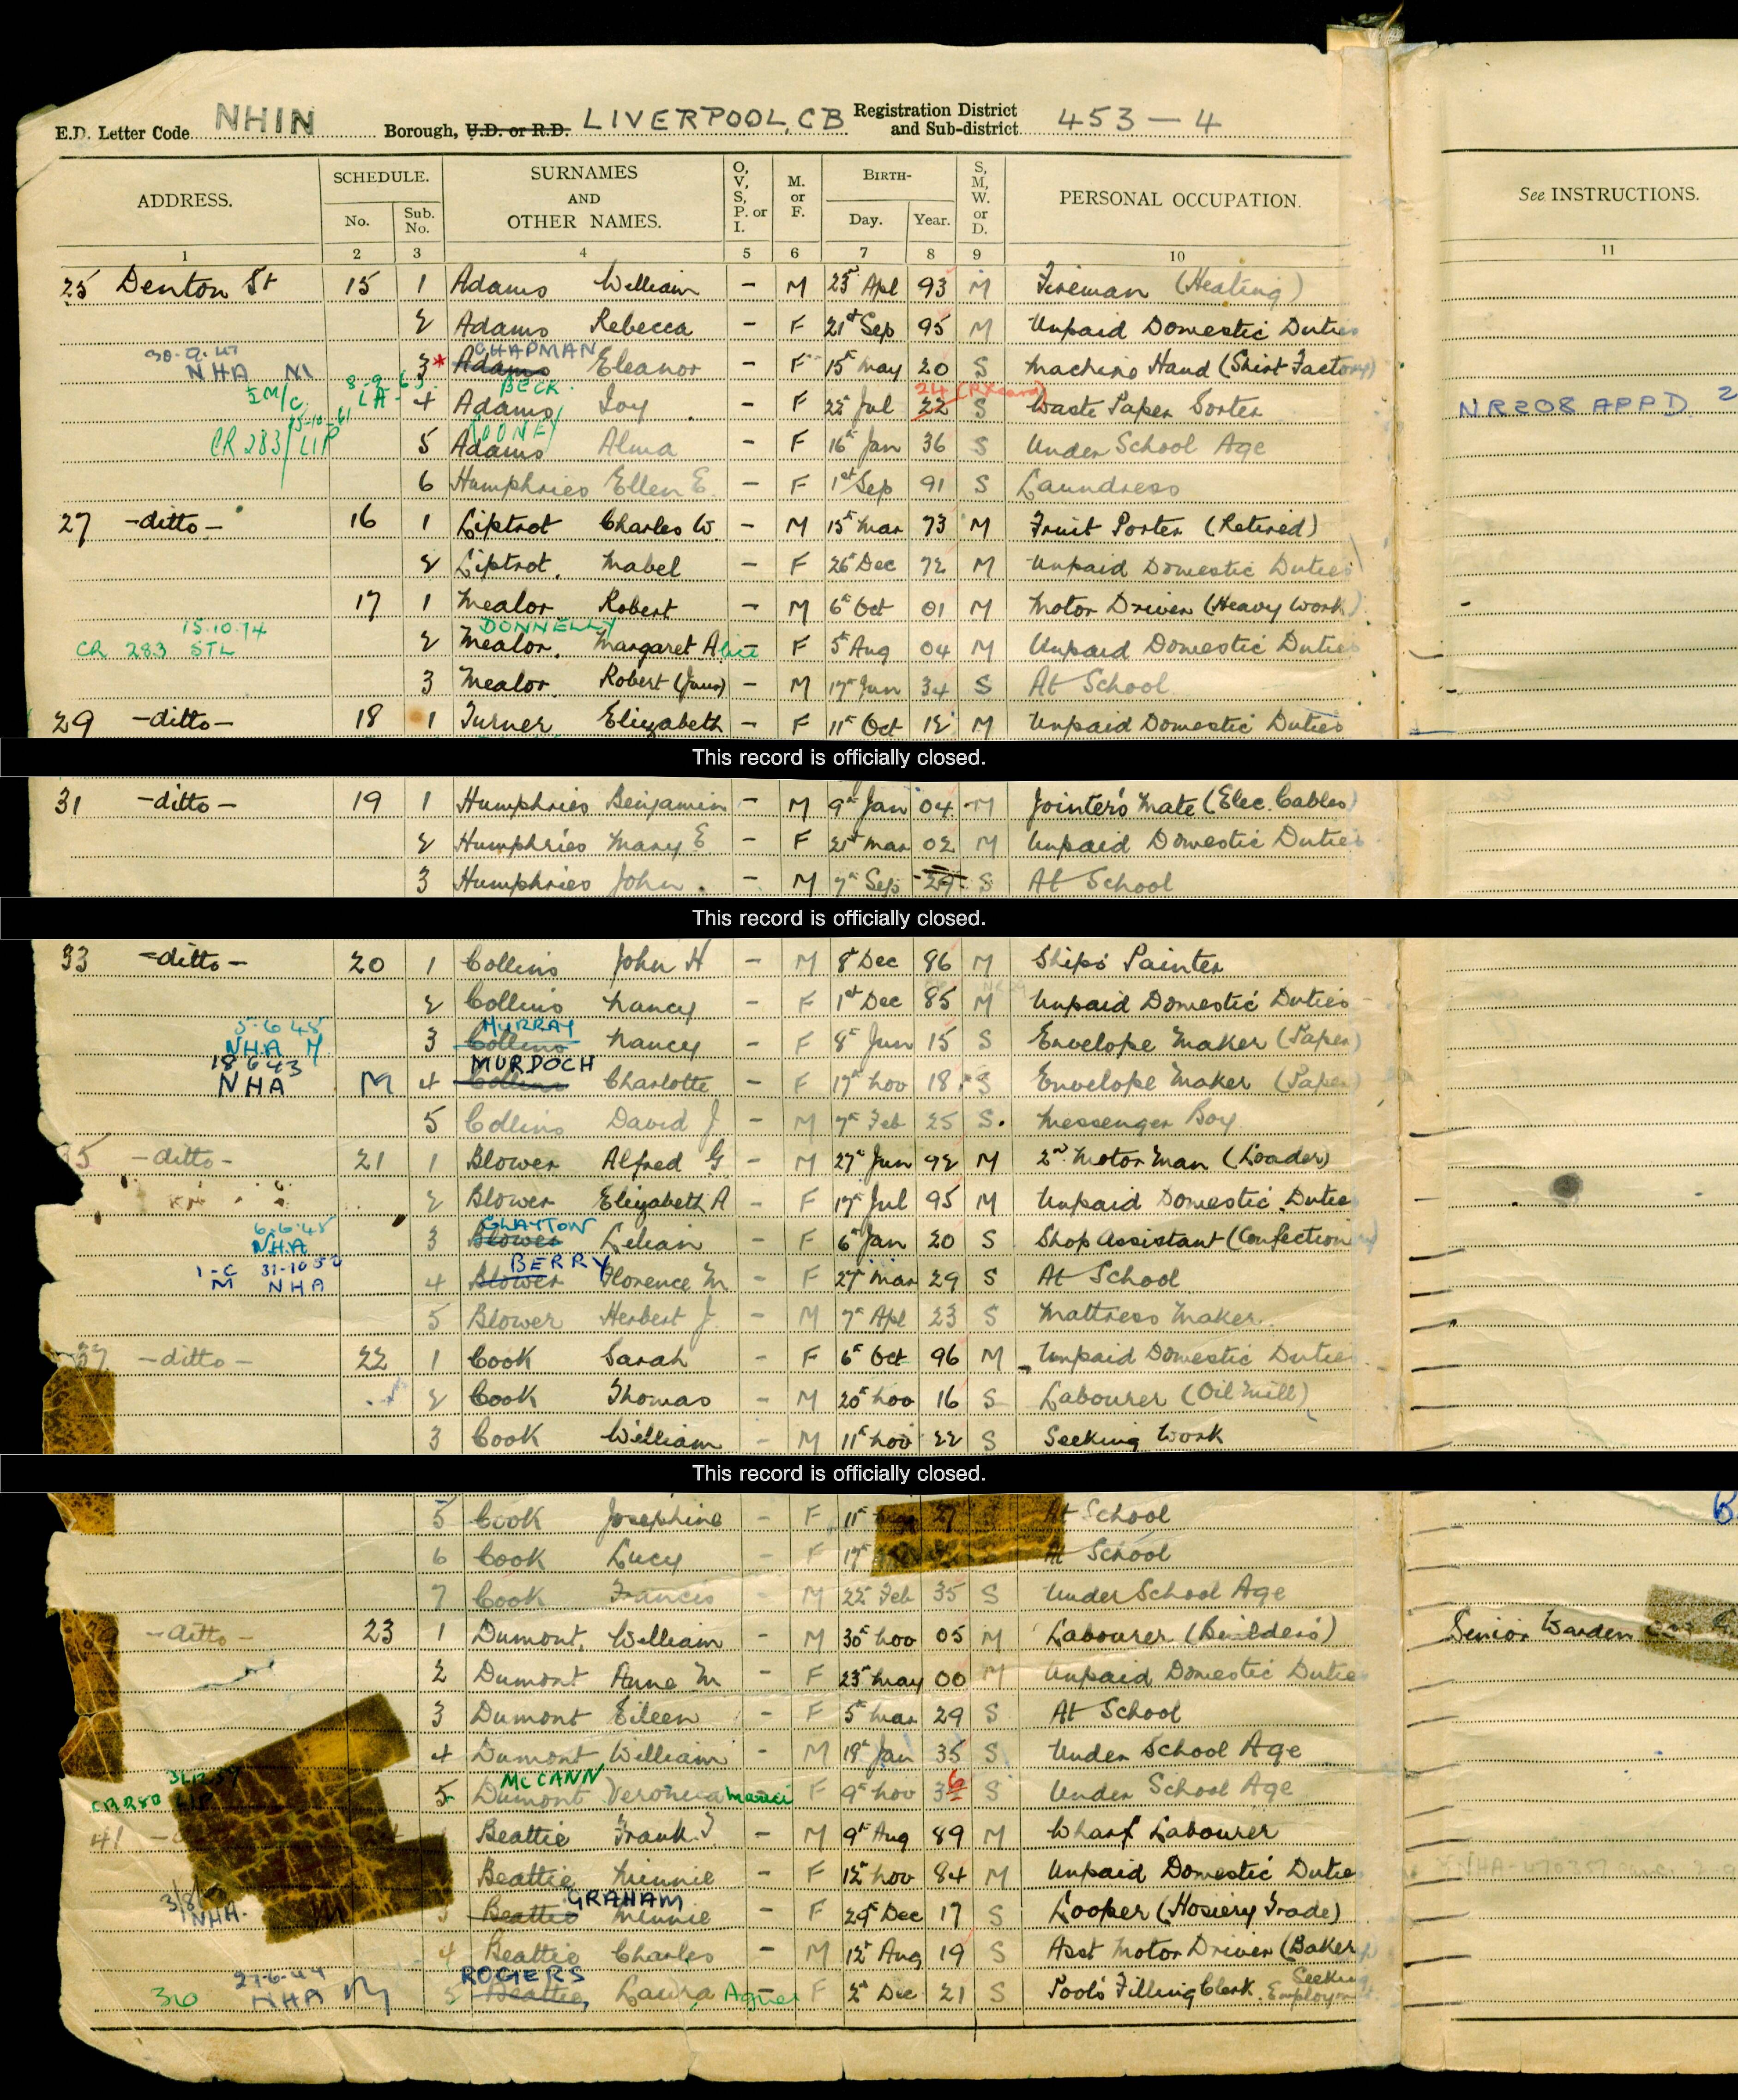 E.D. Letter Code NHIN Borough, U.D. or R.D. LIVERPOOL, CB Registration District and Sub-district 453 — 4
ADDRESS. SCHEDULE. No. Sub. No. SURNAMES AND OTHER NAMES. O, V, S, P. or I. M. or F. BIRTH- Day. Year. S, M, W. or D. PERSONAL OCCUPATION. See INSTRUCTIONS.
1 2 3 4 5 6 7 8 9 10 11
25 Denton St 15 1 Adams William - M 25th Apl 93 M Fireman (Heating)
2 Adams Rebecca - F 21st Sep 95 M Unpaid Domestic Duties
30.9.41 CHAPMAN
NHA M 3* Adams Eleanor - F 15th May 20 S Machine Hand (Shirt Factory)
8-9-63 BECK 24
LA- 4 Adams Joy - F 22nd Jul 22 S Waste Paper Sorter NR208 APPD 2
15-10-61
CR 283/LIP 5 Adams Alma - F 16th Jan 36 S Under School Age
6 Humphries Ellen E. - F 1st Sep 91 S Laundress
27 -ditto- 16 1 Liptrot Charles W. - M 15th Mar 73 M Fruit Porter (Retired)
2 Liptrot Mabel - F 26th Dec 72 M Unpaid Domestic Duties
17 1 Mealor Robert - M 6th Oct 01 M Motor Driver (Heavy Work)
15.10.74 DONNELLY
CR 283 STL 2 Mealor Margaret Alice - F 5th Aug 04 M Unpaid Domestic Duties
3 Mealor Robert (Junr) - M 17th Jun 34 S At School
29 -ditto- 18 1 Turner Elizabeth - F 11th Oct 12 M Unpaid Domestic Duties
This record is officially closed.
31 -ditto- 19 1 Humphries Benjamin - M 9th Jan 04 M Jointer's Mate (Elec. Cables)
2 Humphries Mary E - F 21st Mar 02 M Unpaid Domestic Duties
3 Humphries John - M 7th Sep S At School
This record is officially closed.
33 -ditto- 20 1 Collins John H - M 8th Dec 86 M Ships Painter
2 Collins Nancy - F 1st Dec 85 M Unpaid Domestic Duties
5.6.45 MURRAY
NHA M 3 Collins Nancy - F 8th Jun 15 S Envelope Maker (Paper)
18.6.43 MURDOCH
NHA M 4 Collins Charlotte - F 17th Nov 18 S Envelope Maker (Paper)
5 Collins David J - M 7th Feb 25 S Messenger Boy
35 -ditto- 21 1 Blower Alfred G - M 27th Jun 92 M 2nd Motor Man (Loader)
2 Blower Elizabeth A - F 17th Jul 95 M Unpaid Domestic Duties
6.6.45 CLAYTON
NHA 3 Blower Lilian - F 6th Jan 20 S Shop Assistant (Confection
1-C 31-10 50 BERRY
M NHA 4 Blower Florence M - F 27th Mar 29 S At School
5 Blower Herbert J. - M 7th Apl 23 S Mattress Maker
37 -ditto- 22 1 Cook Sarah - F 6th Oct 96 M Unpaid Domestic Duties
2 Cook Thomas - M 20th Nov 16 S Labourer (Oil Mill)
3 Cook William - M 11th Nov 22 S Seeking Work
This record is officially closed.
5 Cook Josephine - F 11th 27 At School
6 Cook Lucy - F 17th At School
7 Cook Francis - M 22nd Feb 35 S Under School Age
-ditto- 23 1 Dumont William - M 30th Nov 05 M Labourer (Builders) Senior Warden
2 Dumont Anne M - F 23rd May 00 M Unpaid Domestic Duties
3 Dumont Eileen - F 5th Mar 29 S At School
4 Dumont William - M 19th Jan 35 S Under School Age
McCANN 6
CR280 LIP 5 Dumont Veronica F 9th Nov 3 S Under School Age
41 Beattie Frank J - M 9th Aug 89 M Wharf Labourer
Beattie Minnie - F 12th Nov 84 M Unpaid Domestic Duties
GRAHAM
NHA. M 3 Beattie Minnie - F 29th Dec 17 S Looper (Hosiery Trade)
4 Beattie Charles - M 12th Aug 19 S Asst Motor Driver (Bakery)
27-6-44 ROGERS
NHA M 5 Beattie, Laura Agnes F 2nd Dec 21 S Pools Filling Clerk. Seeking Employment